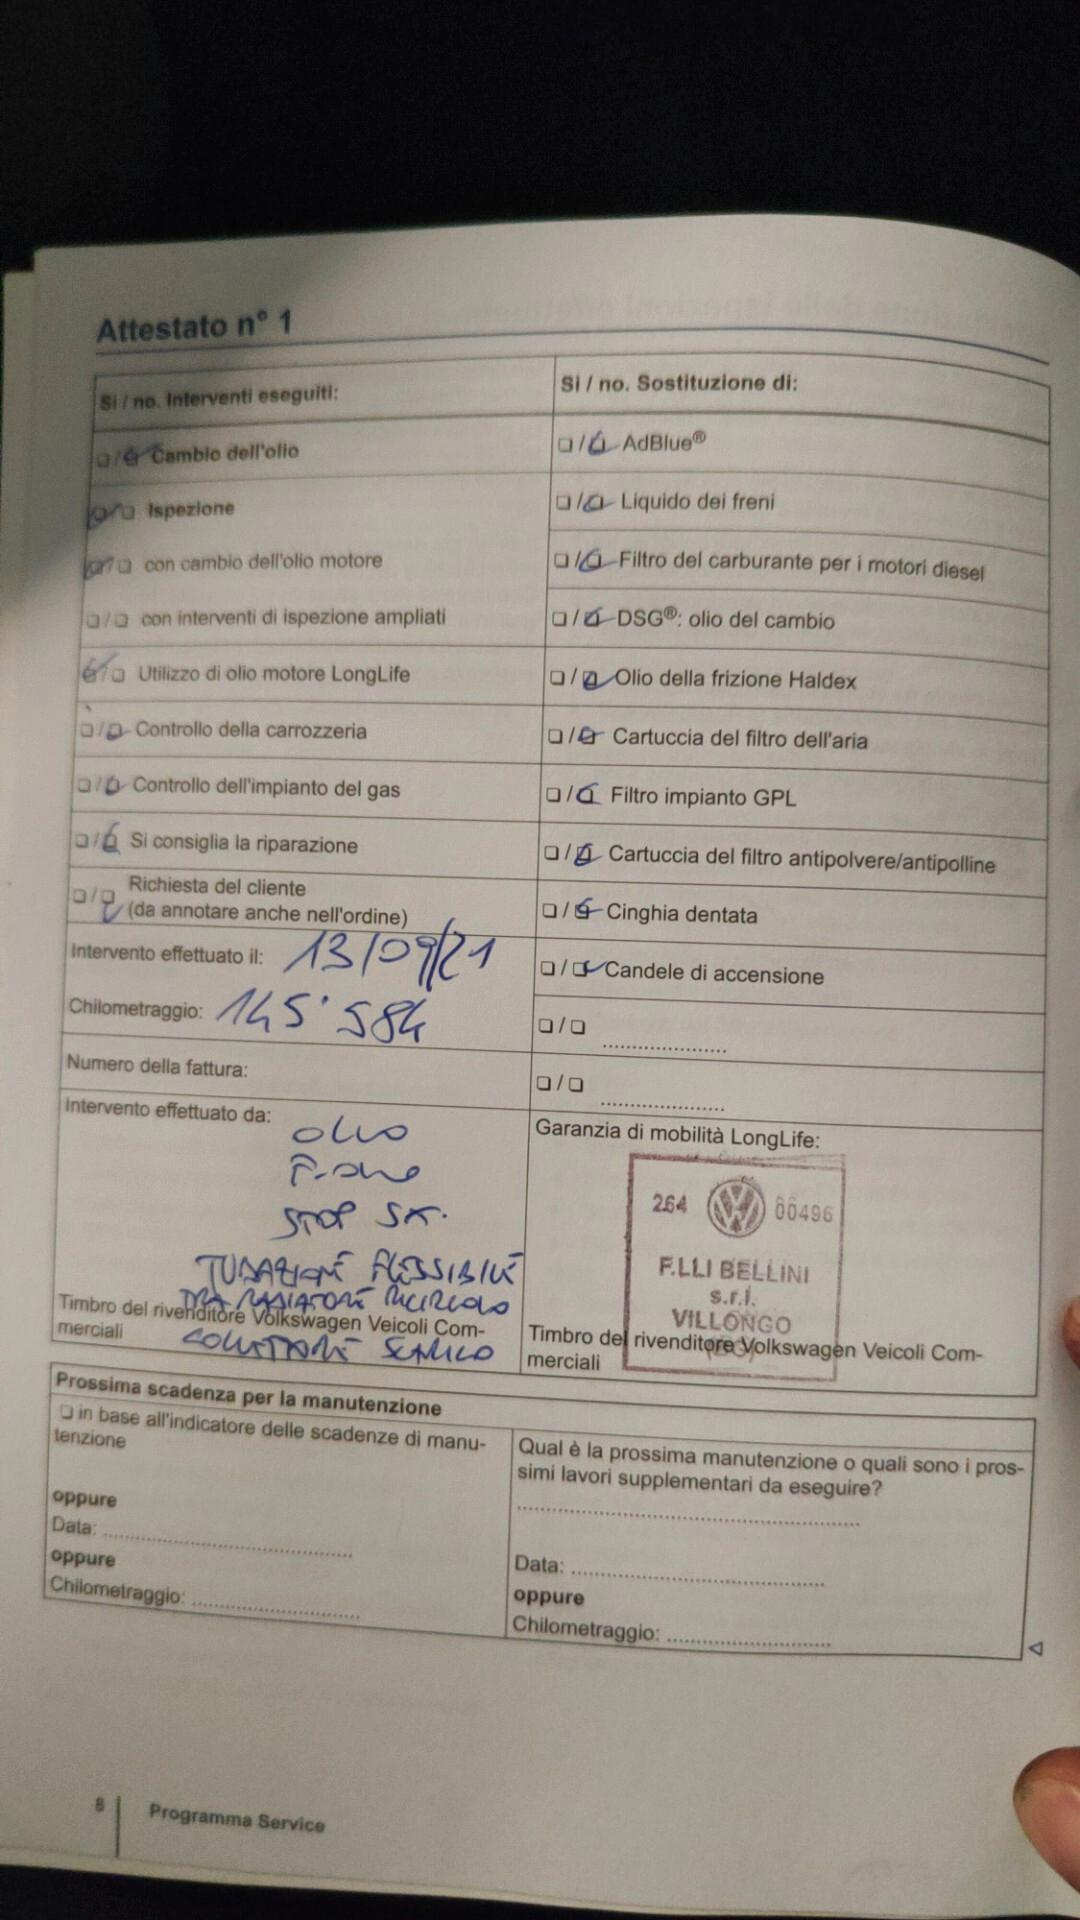 Attestato n° 1
Si / no. Interventi eseguiti:
Cambio dell'olio
Ispezione
con cambio dell'olio motore
con interventi di ispezione ampliati
Utilizzo di olio motore LongLife
Controllo della carrozzeria
Controllo dell'impianto del gas
Si consiglia la riparazione
Richiesta del cliente
(da annotare anche nell'ordine)
Intervento effettuato il: 13/09/21
Chilometraggio: 145'584
Numero della fattura:
Intervento effettuato da:
OLIO
F. OLIO
STOP SK.
TUBAZIONE FLESSIBILE
TRA RADIATORE RICIRCOLO
COLLETTORE SCARICO
Timbro del rivenditore Volkswagen Veicoli Com-
merciali
Si / no. Sostituzione di:
AdBlue®
Liquido dei freni
Filtro del carburante per i motori diesel
DSG®: olio del cambio
Olio della frizione Haldex
Cartuccia del filtro dell'aria
Filtro impianto GPL
Cartuccia del filtro antipolvere/antipolline
Cinghia dentata
Candele di accensione
Garanzia di mobilità LongLife:
264 00496
F.LLI BELLINI
s.r.l.
VILLONGO
(BG)
Timbro del rivenditore Volkswagen Veicoli Com-
merciali
Prossima scadenza per la manutenzione
in base all'indicatore delle scadenze di manu-
tenzione
oppure
Data:
oppure
Chilometraggio:
Qual è la prossima manutenzione o quali sono i pros-
simi lavori supplementari da eseguire?
Data:
oppure
Chilometraggio:
8 Programma Service